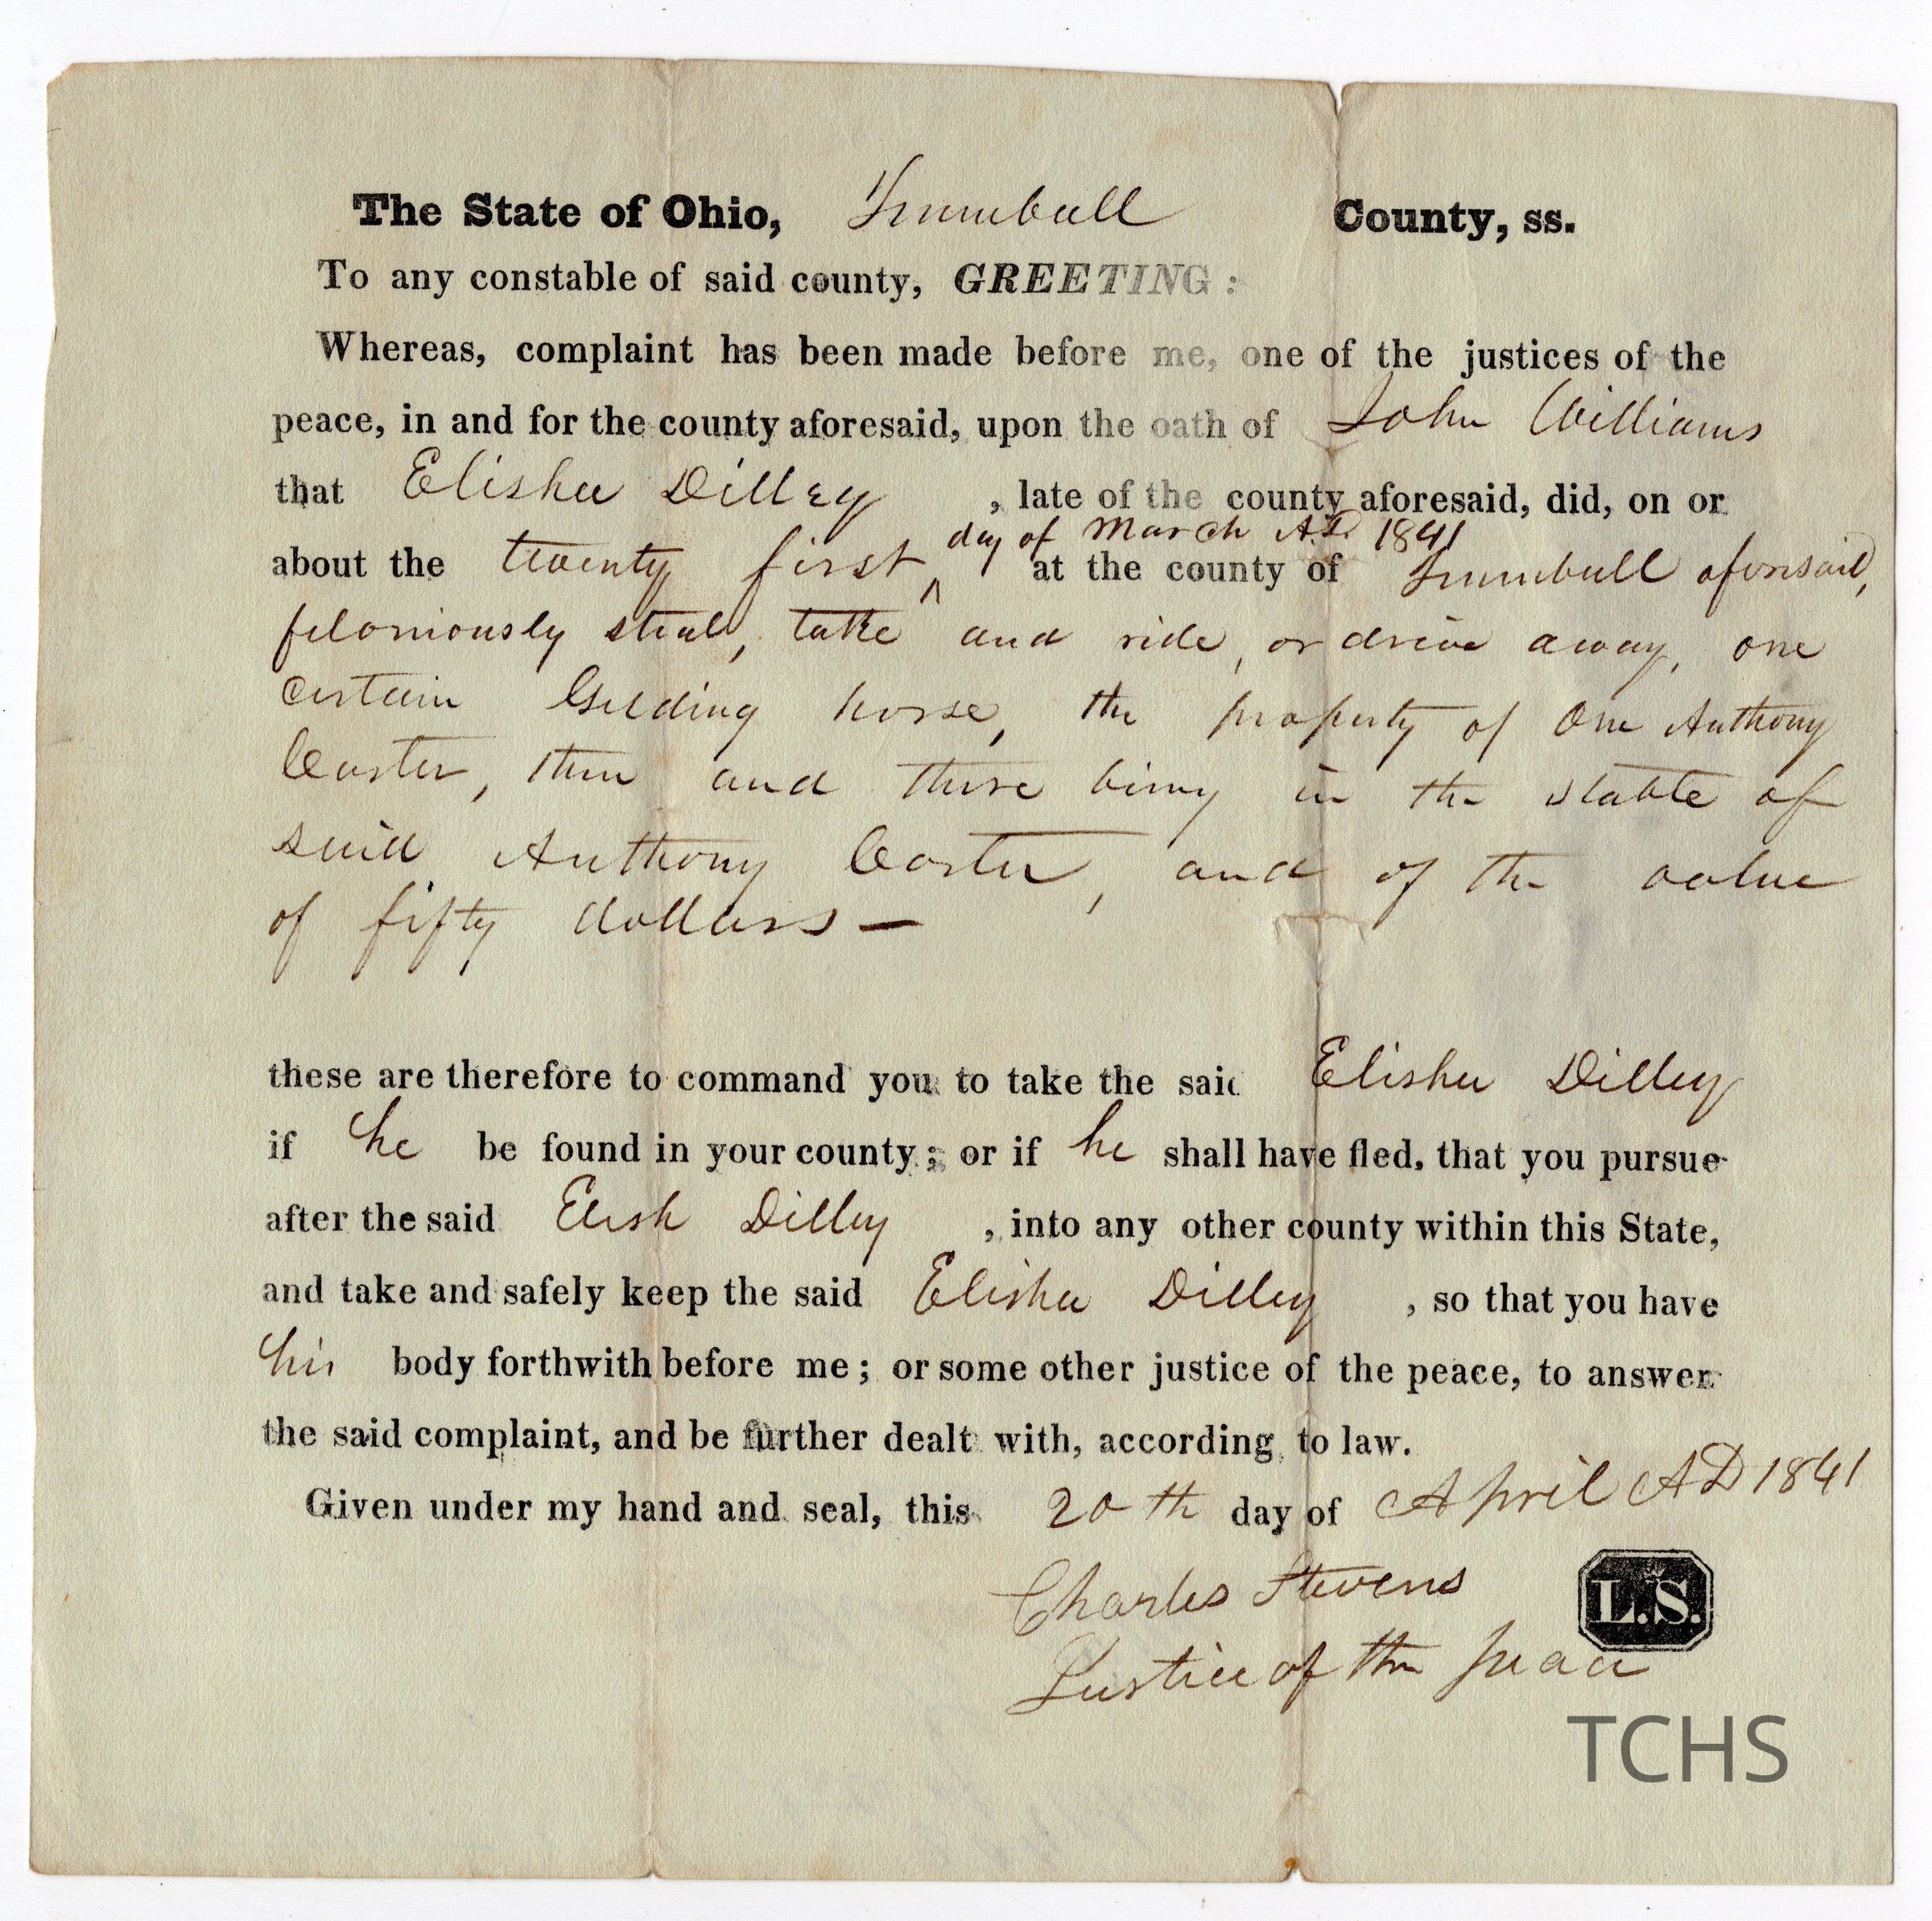 The State of Ohio, Trumbull County, ss.
To any constable of said county, GREETING:
Whereas, complaint has been made before me, one of the justices of the
peace, in and for the county aforesaid, upon the oath of John Williams
that Elisha Dilley , late of the county aforesaid, did, on or
day of March A.D. 1841
about the twenty first ^ at the county of Trumbull aforesaid,
feloniously steal, take and ride, or drive away, one
certain Gelding horse, the property of one Anthony
Carter, then and there being in the stable of
said Anthony Carter, and of the value
of fifty dollars —
these are therefore to command you to take the said Elisha Dilley
if he be found in your county; or if he shall have fled, that you pursue
after the said Elish Dilley , into any other county within this State,
and take and safely keep the said Elisha Dilley , so that you have
his body forthwith before me; or some other justice of the peace, to answer
the said complaint, and be further dealt with, according to law.
Given under my hand and seal, this 20th day of April AD 1841
Charles Stevens
L.S.
Justice of the peace
TCHS